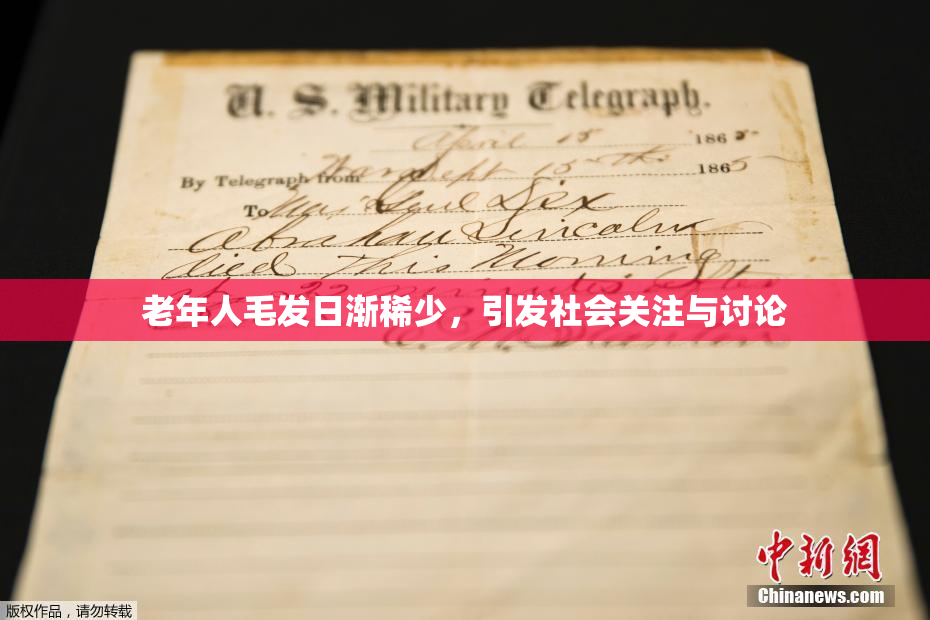 U. S. Military Telegraph.
April 15 1865
By Telegraph from War Dept 15th 1865
To Maj Genl Dix
Abraham Lincoln
died This Morning
at 22 minutes after
老年人毛发日渐稀少，引发社会关注与讨论
E. M. Stanton
中新网
Chinanews.com
版权作品，请勿转载